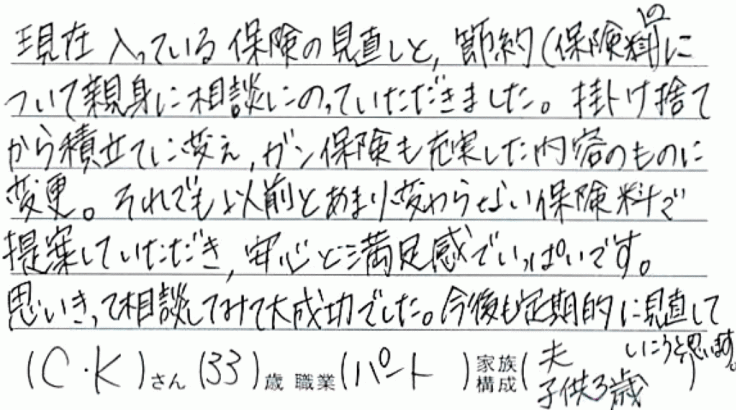 現在入っている保険の見直しと、節約(保険料の)に
ついて親身に相談にのっていただきました。掛け捨て
から積立てに変え、ガン保険も充実した内容のものに
変更。それでも以前とあまり変わらない保険料で
提案していただき、安心と満足感でいっぱいです。
思いきって相談してみて大成功でした。今後も定期的に見直して
いこうと思います。
(C・K)さん(33)歳 職業(パート)家族構成(夫 子供3歳)